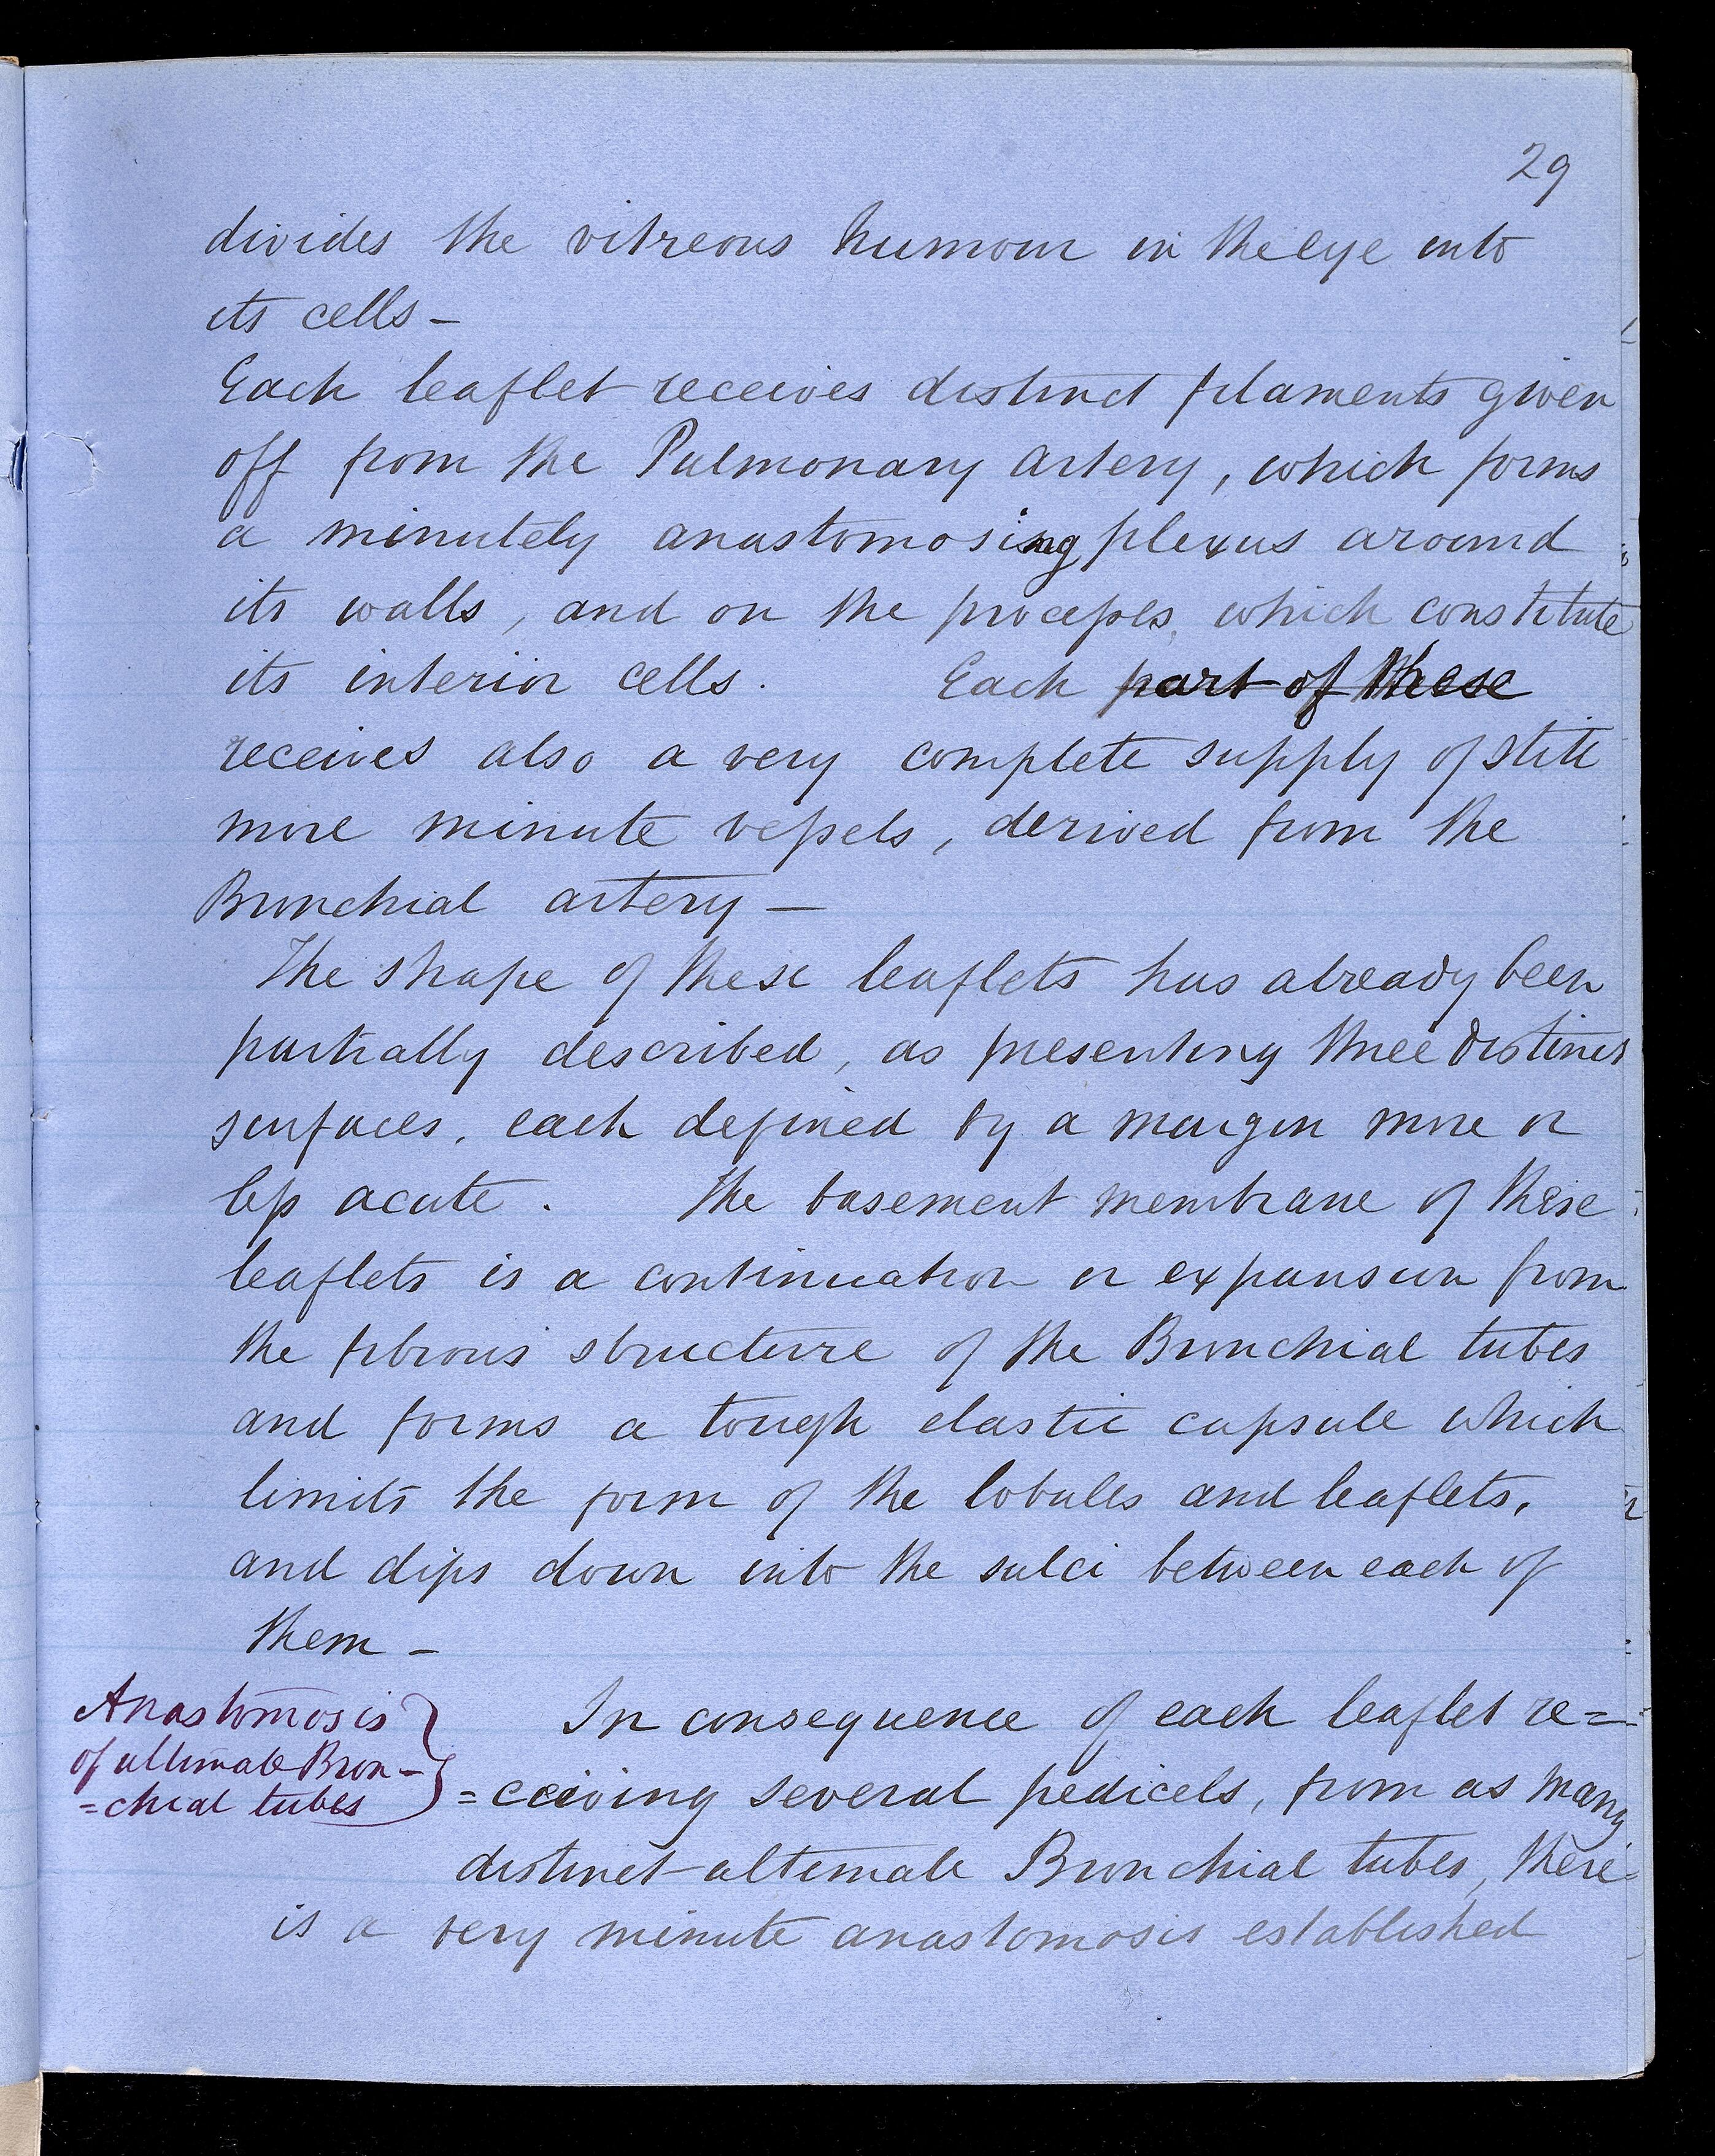 29
divides the vitreous humour in the eye into
its cells -
Each leaflet receives distinct filaments given
off from the Pulmonary artery, which forms
a minutely anastomosing plexus around
its walls, and on the processes, which constitute
its interior cells. Each part of these
receives also a very complete supply of still
more minute vessels, derived from the
Bronchial artery -
The shape of these leaflets has already been
partially described, as presenting three distinct
surfaces, each defined by a margin more or
less acute. The basement membrane of these
leaflets is a continuation or expansion from
the fibrous structure of the Bronchial tubes
and forms a tough elastic capsule which
limits the form of the lobules and leaflets,
and dips down into the sulci between each of
them -
Anastomosis
of ultimate Bron-
=chial tubes
In consequence of each leaflet re=
=ceiving several pedicels, from as many
distinct ultimate Bronchial tubes, there
is a very minute anastomosis established